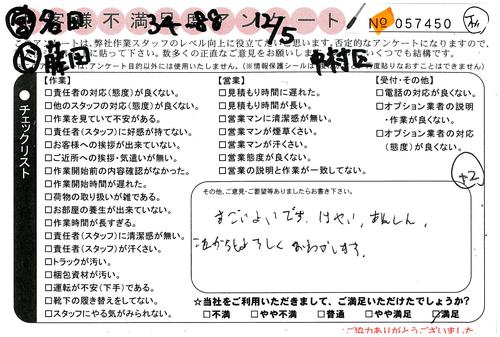 お客様不満足度アンケート
34-88 12/5
No 057450
アンケートは、弊社作業スタッフのレベル向上に役立てたいと思います。否定的なアンケートになりますので、
中村区
●チェックリスト
【作業】
□責任者の対応(態度)が良くない。
□他のスタッフの対応(態度)が良くない。
□作業を見ていて不安がある。
□責任者(スタッフ)に好感が持てない。
□お客様への挨拶が出来ていない。
□ご近所への挨拶・気遣いが無い。
□作業開始前の内容確認がなかった。
□作業開始時間が遅れた。
□荷物の取り扱いが雑である。
□お部屋の養生が出来ていない。
□作業時間が長すぎる。
□責任者(スタッフ)に清潔感が無い。
□責任者(スタッフ)が汗くさい。
□トラックが汚い。
□梱包資材が汚い。
□運転が不安(下手)である。
□靴下の履き替えをしてない。
□スタッフにやる気がみられない。
【営業】
□見積もりに遅れた。
□見積もり時間が長い。
□営業マンに清潔感が無い。
□営業マンが煙草くさい。
□営業マンが汗くさい。
□営業態度が良くない。
□営業の説明と作業が一致してない。
【受付・その他】
□電話の対応が良くない。
□オプション業者の説明
・作業が良くない。
□オプション業者の対応
(態度)が良くない。
+2
その他、ご意見・ご要望等ありましたらお書き下さい。
すごいよいです。はやい、あんしん、
これからもよろしくおねがいします。
☆当社をご利用いただきまして、ご満足いただけたでしょうか?
□不満 □やや不満 □普通 □やや満足 □満足
ご協力ありがとうございました